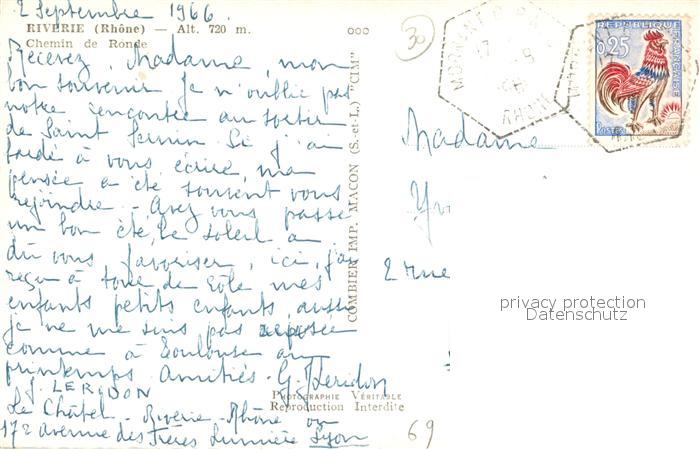 2 Septembre 1966.
RIVERIE (Rhône) — Alt. 720 m.
Chemin de Ronde
Recevez, Madame, mon
bon souvenir je n'oublie pas
notre rencontre au sortir
de Saint Sernin. Si j'ai
tardé à vous écrire, ma
pensée a été souvent vous
rejoindre - Avez vous passé
un bon été, le soleil a
dû vous favoriser, ici, j'ai
reçu à tour de rôle mes
enfants petits enfants, aussi
je ne me suis pas reposée
comme à Toulouse au
printemps Amitiés - G. Leridon
J. LERIDON
Le Châtel - Riverie - Rhône ou
172 avenue des Frères Lumière Lyon
COMBIER IMP. MACON (S.-et-L.) "CIM"
PHOTOGRAPHIE VÉRITABLE
Reproduction Interdite
30
RÉPUBLIQUE FRANÇAISE
0,25
Postes
RHÔNE
Madame
Yv
2 rue
privacy protection
Datenschutz
69